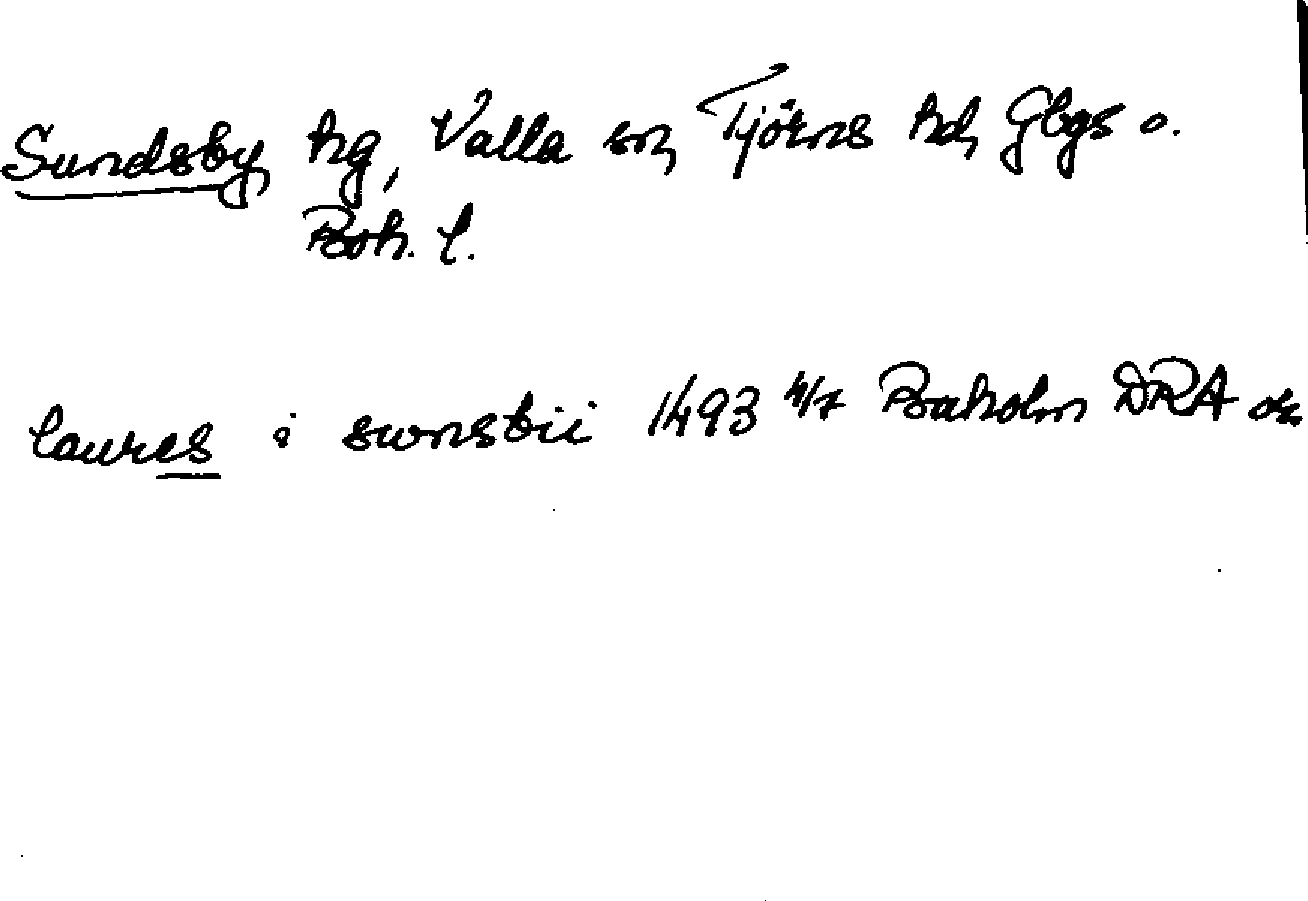 Sundsby hg, Valla sn, Tjörns hd, Gbgs o.
Boh. l.
laures i swnsbii 1493 4/7 Baholm DRA